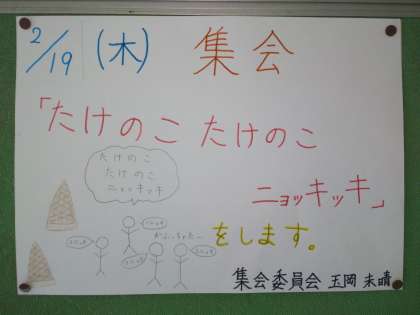 2/19 (木) 集会
「たけのこ たけのこ
ニョッキッキ」
たけのこ
たけのこ
ニョッキッキ
をします。
集会委員会 玉岡 未晴